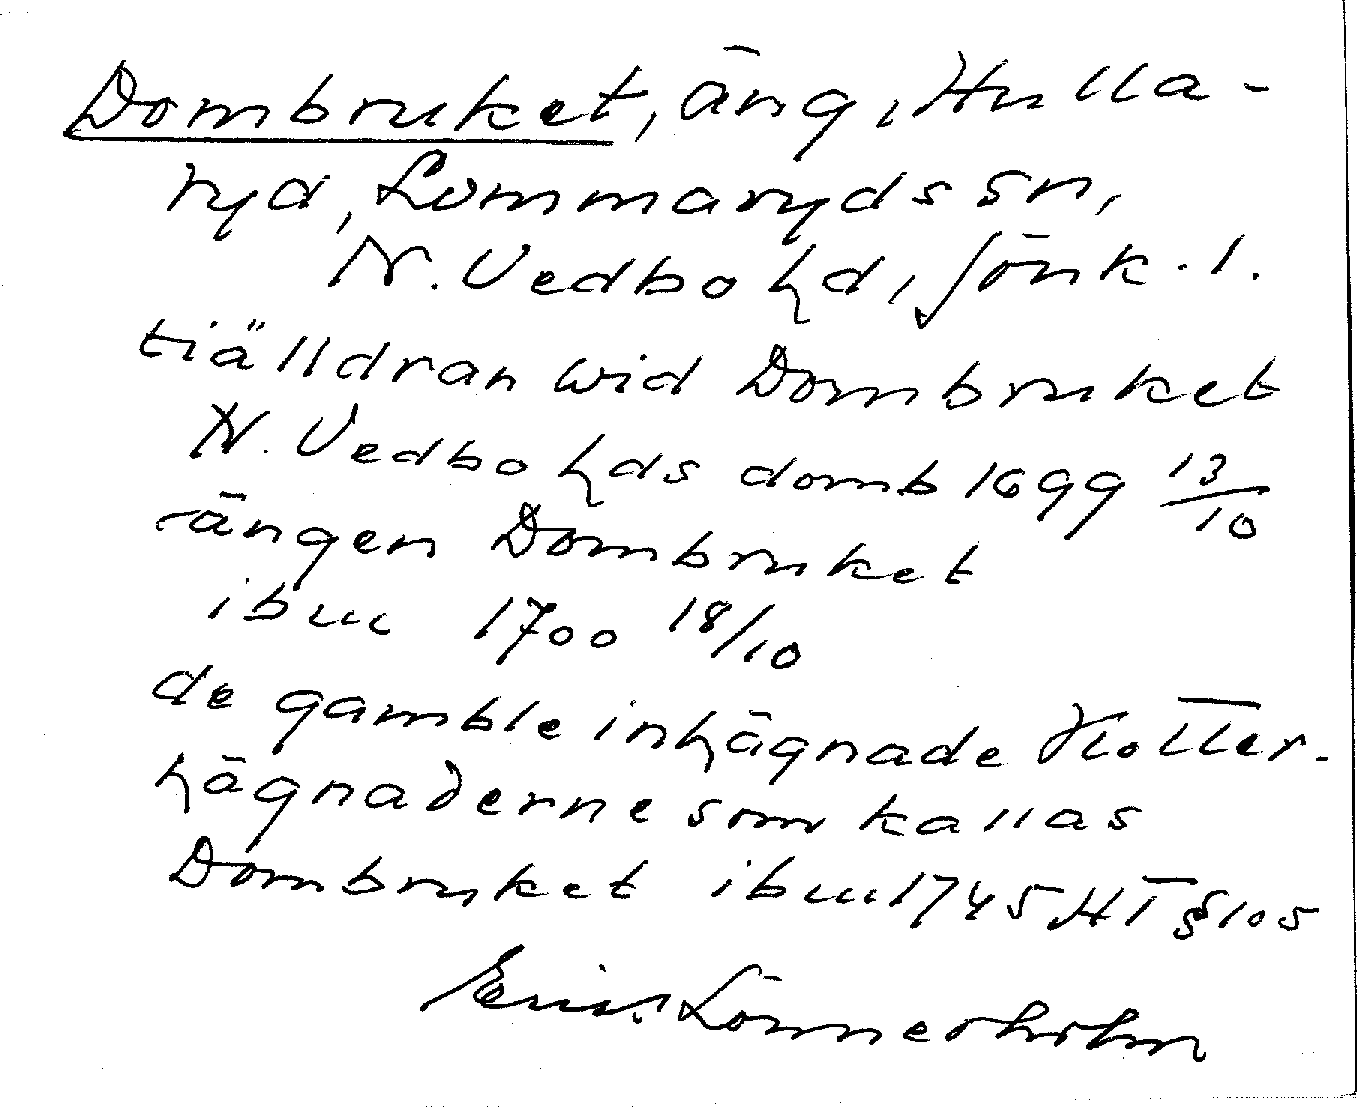 Dombruket, äng, Hulla-
ryd, Lommaryds sn,
N. Vedbo hd, Jönk. l.
tiälldran wid Dombruket
N. Vedbo hds domb 1699 13/10
ängen Dombruket
ibm 1700 18/10
de gamble inhägnade
hägnaderne som kallas
Dombruket ibm 1745 HT § 105
Erik Lönnerholm